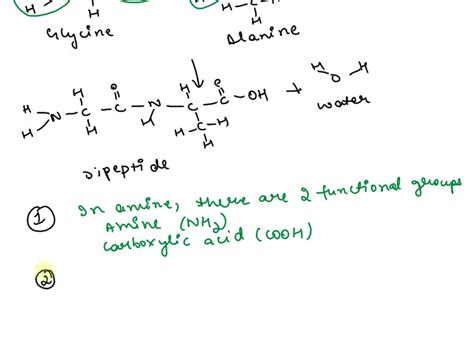 Glycine
Alanine
H
H
H
H
O
H
O
H
H-N-C-C-N-C-C-OH + H-O-H
H
H
H
H-C-H
H
water
Dipeptide
1 In amine, there are 2 functional groups
Amine (NH2)
Carboxylic acid (COOH)
2